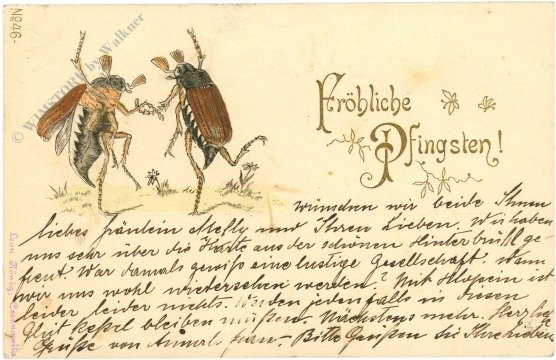 No 46-
© WIMSTORY by Walkner
Fröhliche
Pfingsten!
wünschen wir beide Ihnen
liebes Fräulein und Ihren Lieben. Wir haben
uns sehr über die Karte aus der schönen Hinterbrühl ge-
freut. War damals gewiß eine lustige Gesellschaft. Wann
wir uns wohl wiedersehen werden? Mit ist es
leider leider nichts. Werden jedenfalls in diesen
Glutkessel bleiben müßen. Nächstens mehr. Herzliche
Grüße von Bitte Grüßen Sie Ihre lieben